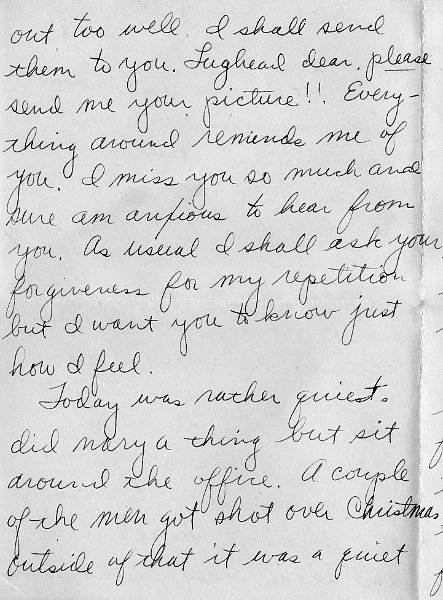 out too well. I shall send
them to you. Jughead dear, please
send me your picture!! Every-
thing around reminds me of
you. I miss you so much and
sure am anxious to hear from
you. As usual I shall ask your
forgiveness for my repetition
but I want you to know just
how I feel.
Today was rather quiest.
did nary a thing but sit
around the office. A couple
of the men got shot over Christmas
outside of that it was a quiet